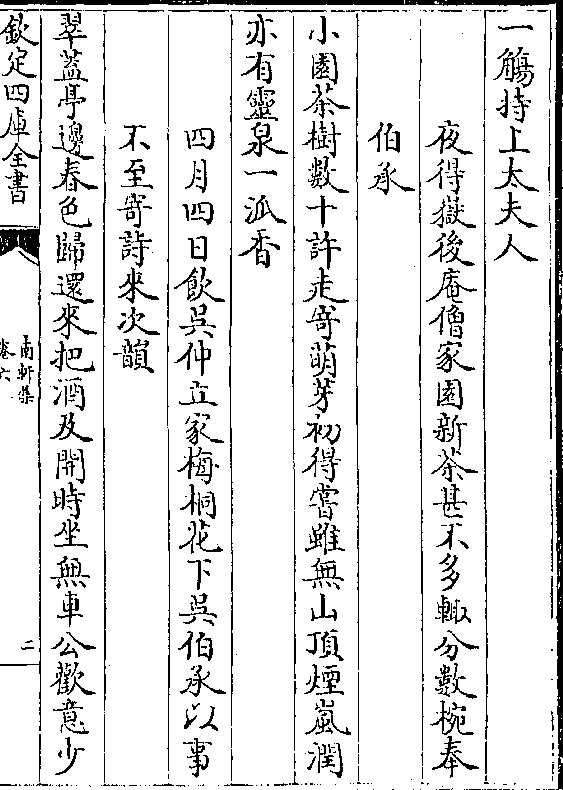 一觴持上太夫人
夜得嶽後庵僧家園新茶甚不多輙分數椀奉
伯承
小園茶樹數十許走寄萌芽初得嘗雖無山頂煙嵐潤
亦有靈泉一派香
四月四日飲吳仲立家梅桐花下吳伯承以事
不至寄詩來次韻
翠葢亭邊春色歸還來把酒及開時坐無車公歡意少
欽定四庫全書
南軒集
卷六
二